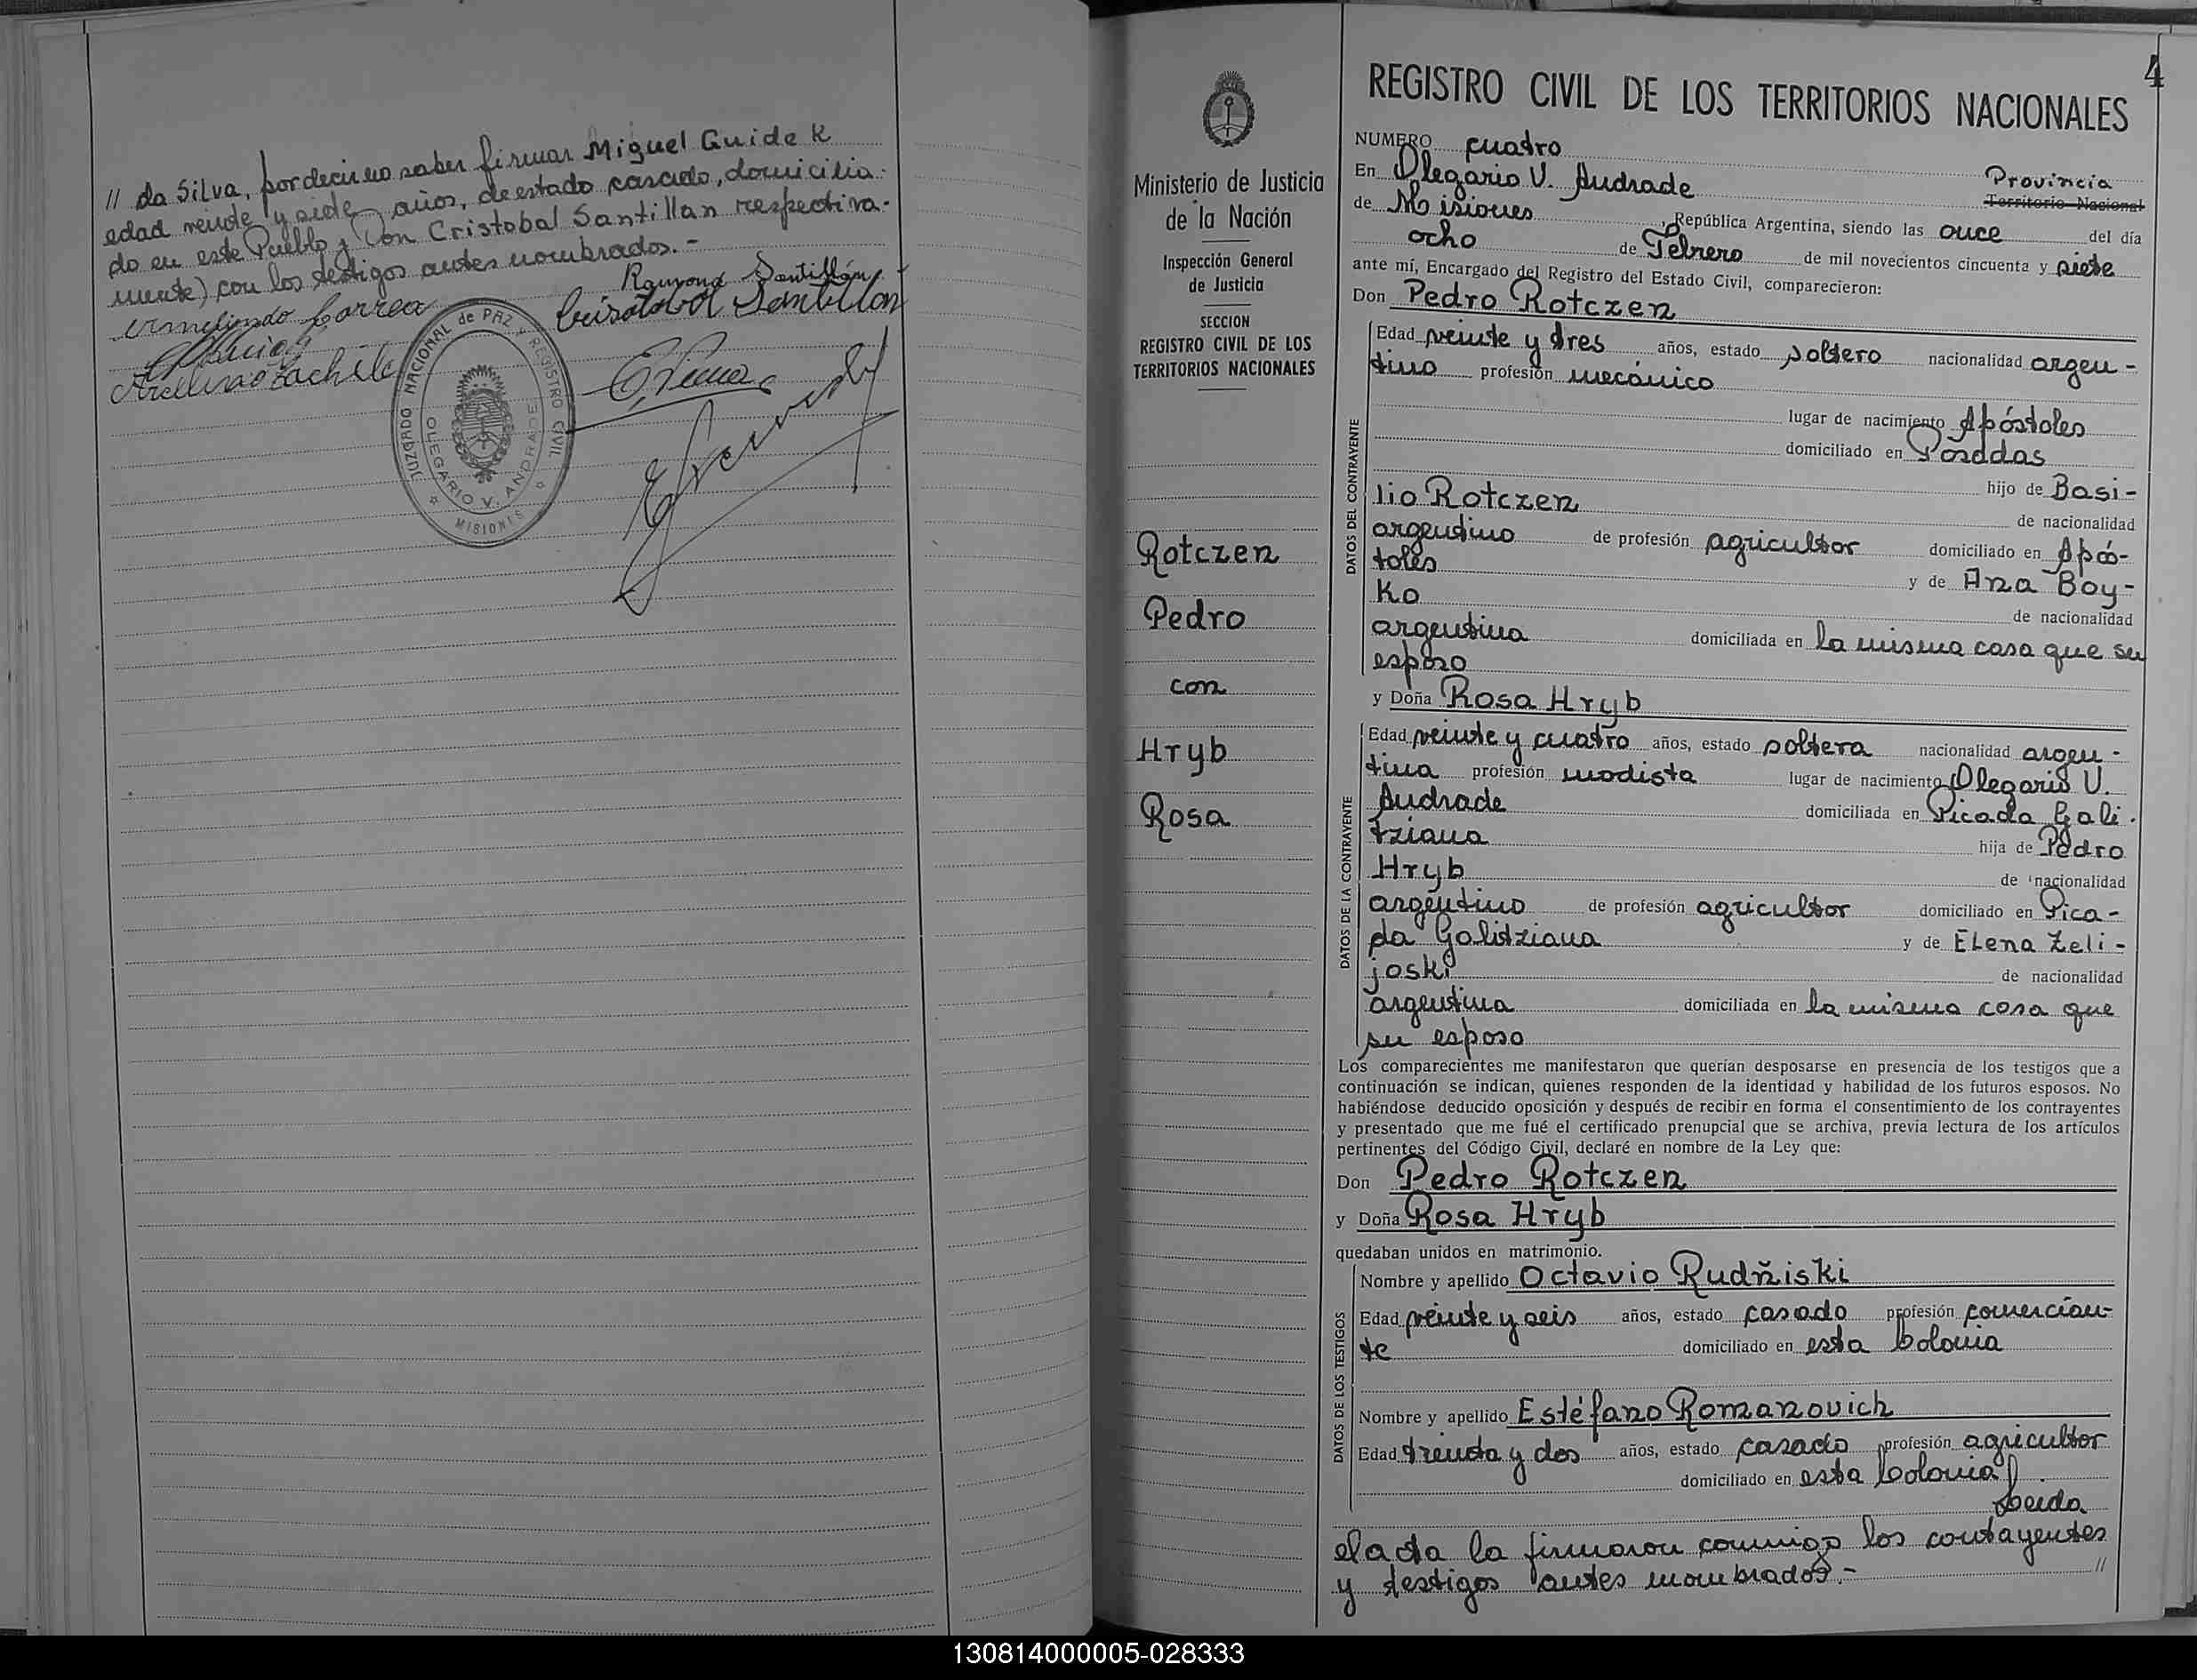 // da Silva, por decir no saber firmar Miguel Guidek
edad veinte y siete años, de estado casado, domicilia-
do en este Pueblo y Don Cristobal Santillan respectiva-
mente) con los testigos antes nombrados.-
Ramona Santillán
Cristobal Santillan
Ermelindo Correa
JUZGADO NACIONAL de PAZ y REGISTRO CIVIL
OLEGARIO V. ANDRADE
MISIONES
4
Ministerio de Justicia
de la Nación
Inspección General
de Justicia
SECCION
REGISTRO CIVIL DE LOS
TERRITORIOS NACIONALES
Rotczen
Pedro
con
Hryb
Rosa
REGISTRO CIVIL DE LOS TERRITORIOS NACIONALES
NUMERO cuatro
En Olegario V. Andrade Provincia
Territorio Nacional
de Misiones, República Argentina, siendo las once del día
ocho de Febrero de mil novecientos cincuenta y siete
ante mí, Encargado del Registro del Estado Civil, comparecieron:
Don Pedro Rotczen
DATOS DEL CONTRAYENTE
Edad veinte y tres años, estado soltero nacionalidad argen-
tino profesión mecánico
lugar de nacimiento Apóstoles
domiciliado en Posadas
hijo de Basi-
lio Rotczen
de nacionalidad
argentino de profesión agricultor domiciliado en Após-
toles y de Ana Boy-
ko
de nacionalidad
argentina domiciliada en la misma casa que su
esposo
y Doña Rosa Hryb
DATOS DE LA CONTRAYENTE
Edad veinte y cuatro años, estado soltera nacionalidad argen-
tina profesión modista lugar de nacimiento Olegario V.
Andrade domiciliada en Picada Gali-
tziana hija de Pedro
Hryb de nacionalidad
argentino de profesión agricultor domiciliado en Pica-
da Galitziana y de Elena Zeli-
joski de nacionalidad
argentina domiciliada en la misma casa que
su esposo
Los comparecientes me manifestaron que querían desposarse en presencia de los testigos que a
continuación se indican, quienes responden de la identidad y habilidad de los futuros esposos. No
habiéndose deducido oposición y después de recibir en forma el consentimiento de los contrayentes
y presentado que me fué el certificado prenupcial que se archiva, previa lectura de los artículos
pertinentes del Código Civil, declaré en nombre de la Ley que:
Don Pedro Rotczen
y Doña Rosa Hryb
quedaban unidos en matrimonio.
DATOS DE LOS TESTIGOS
Nombre y apellido Octavio Rudñiski
Edad veinte y seis años, estado casado profesión comercian-
te domiciliado en esta Colonia
Nombre y apellido Estéfano Romanovich
Edad treinta y dos años, estado casado profesión agricultor
domiciliado en esta Colonia.
Leida
el acta la firmaron conmigo los contayentes
y testigos antes nombrados.- //
130814000005-028333